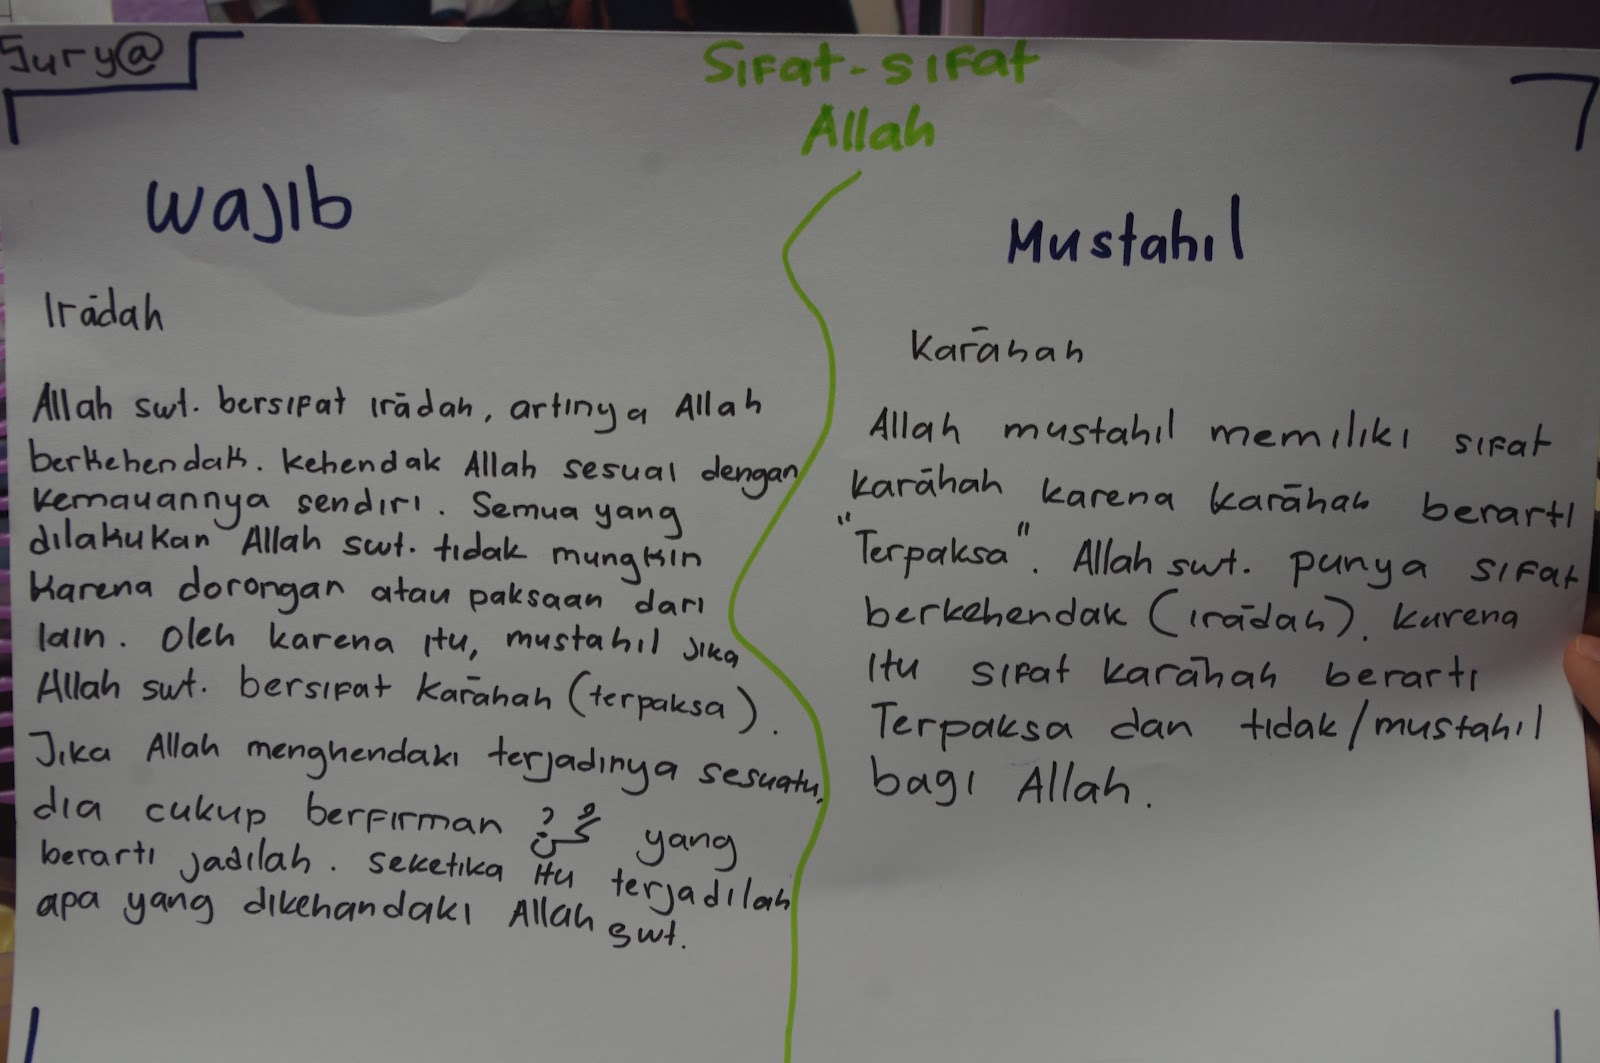 Sury@
Sifat-sifat
Allah
Wajib
Irādah
Allah swt. bersifat irādah, artinya Allah
berkehendak. kehendak Allah sesuai dengan
kemauannya sendiri. Semua yang
dilakukan Allah swt. tidak mungkin
karena dorongan atau paksaan dari
lain. Oleh karena itu, mustahil jika
Allah swt. bersifat karāhah (terpaksa).
Jika Allah menghendaki terjadinya sesuatu,
dia cukup berfirman كُنْ yang
berarti jadilah. seketika itu terjadilah
apa yang dikehandaki Allah swt.
Mustahil
Karāhah
Allah mustahil memiliki sifat
karāhah karena karāhah berarti
"Terpaksa". Allah swt. punya sifat
berkehendak (irādah). karena
itu sifat karāhah berarti
Terpaksa dan tidak/mustahil
bagi Allah.